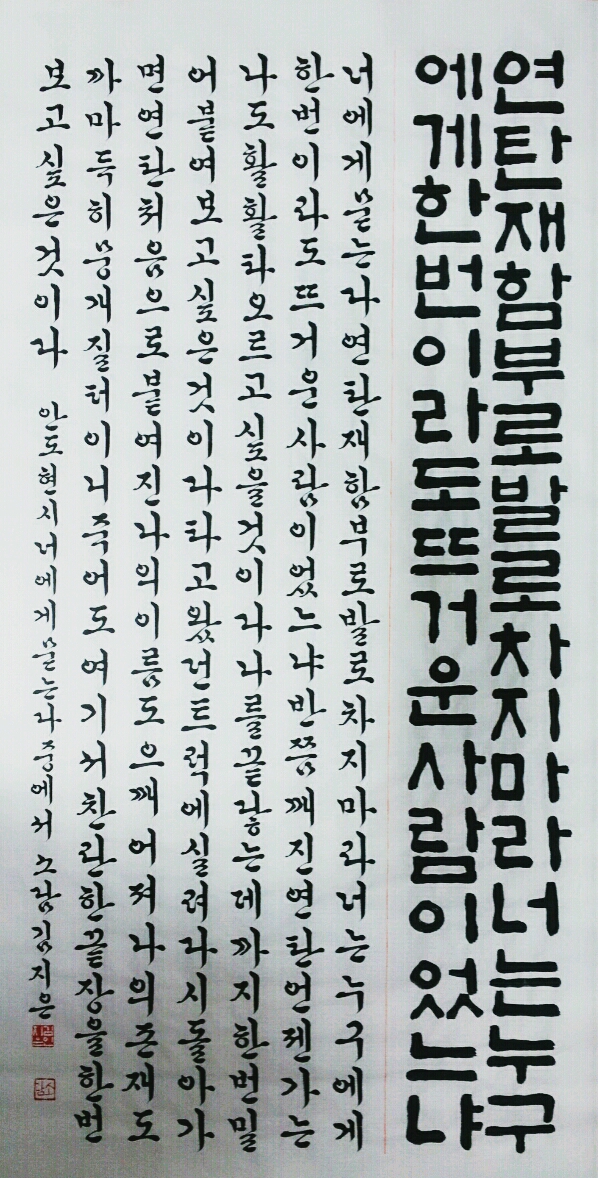 연탄재함부로발로차지마라너는누구
에게한번이라도뜨거운사람이었느냐
너에게묻는다연탄재함부로발로차지마라너는누구에게
한번이라도뜨거운사람이었느냐반쯤깨진연탄언젠가는
나도활활타오르고싶을것이다나를끝닿는데까지한번밀
어붙여보고싶은것이다타고왔던트럭에실려다시돌아가
면연탄처음으로붙여진나의이름도으깨어져나의존재도
까마득히뭉개질터이니죽어도여기서찬란한끝장을한번
보고싶은것이다 안도현시너에게묻는다중에서 소람김지은